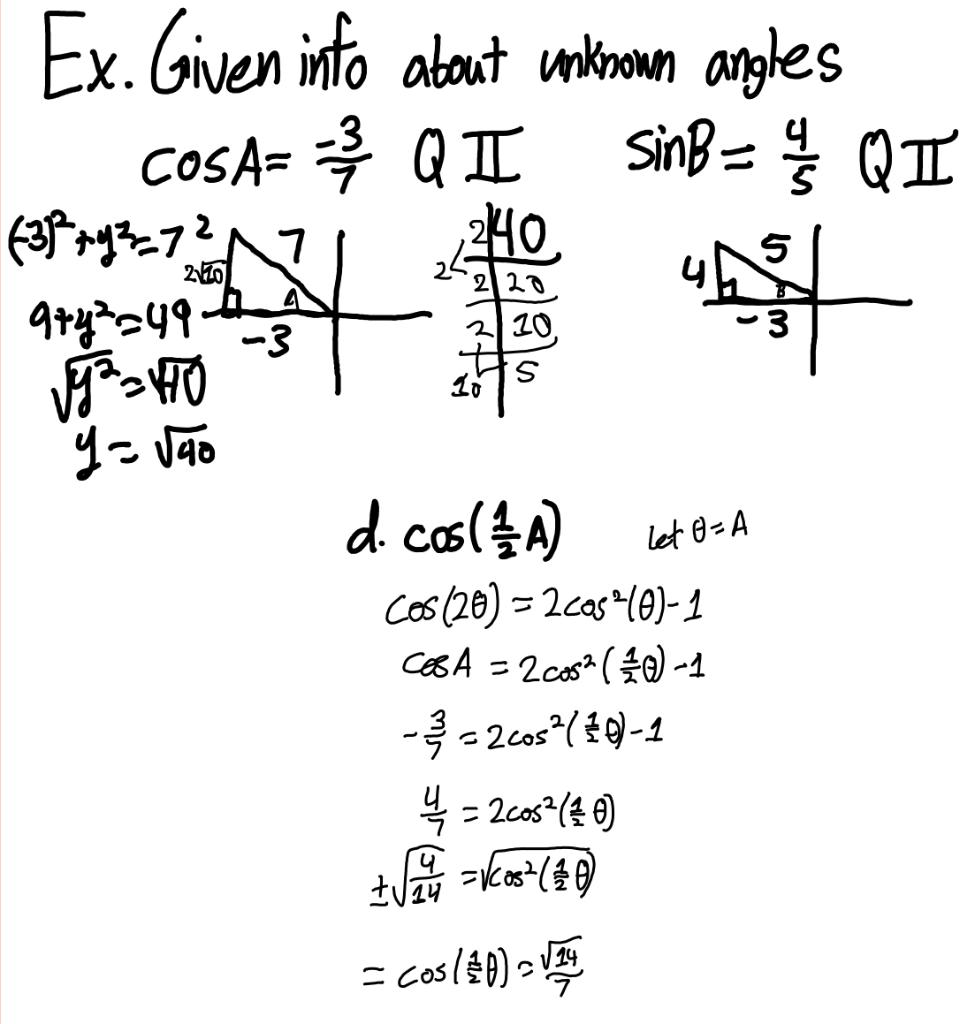 Ex. Given info about unknown angles
cosA= -3/7 Q II sinB = 4/5 Q II
(-3)²+y²=7²
9+y²=49
√y²=√40
y=√40
2√10 7 A -3
2 40
2 2 20
2 10
10 5
4 5 B -3
d. cos(1/2 A) let θ=A
cos(2θ) = 2cos²(θ)-1
cosA = 2cos²(1/2 θ)-1
-3/7 = 2cos²(1/2 θ)-1
4/7 = 2cos²(1/2 θ)
±√4/14 = √cos²(1/2 θ)
= cos(1/2 θ) = √14/7